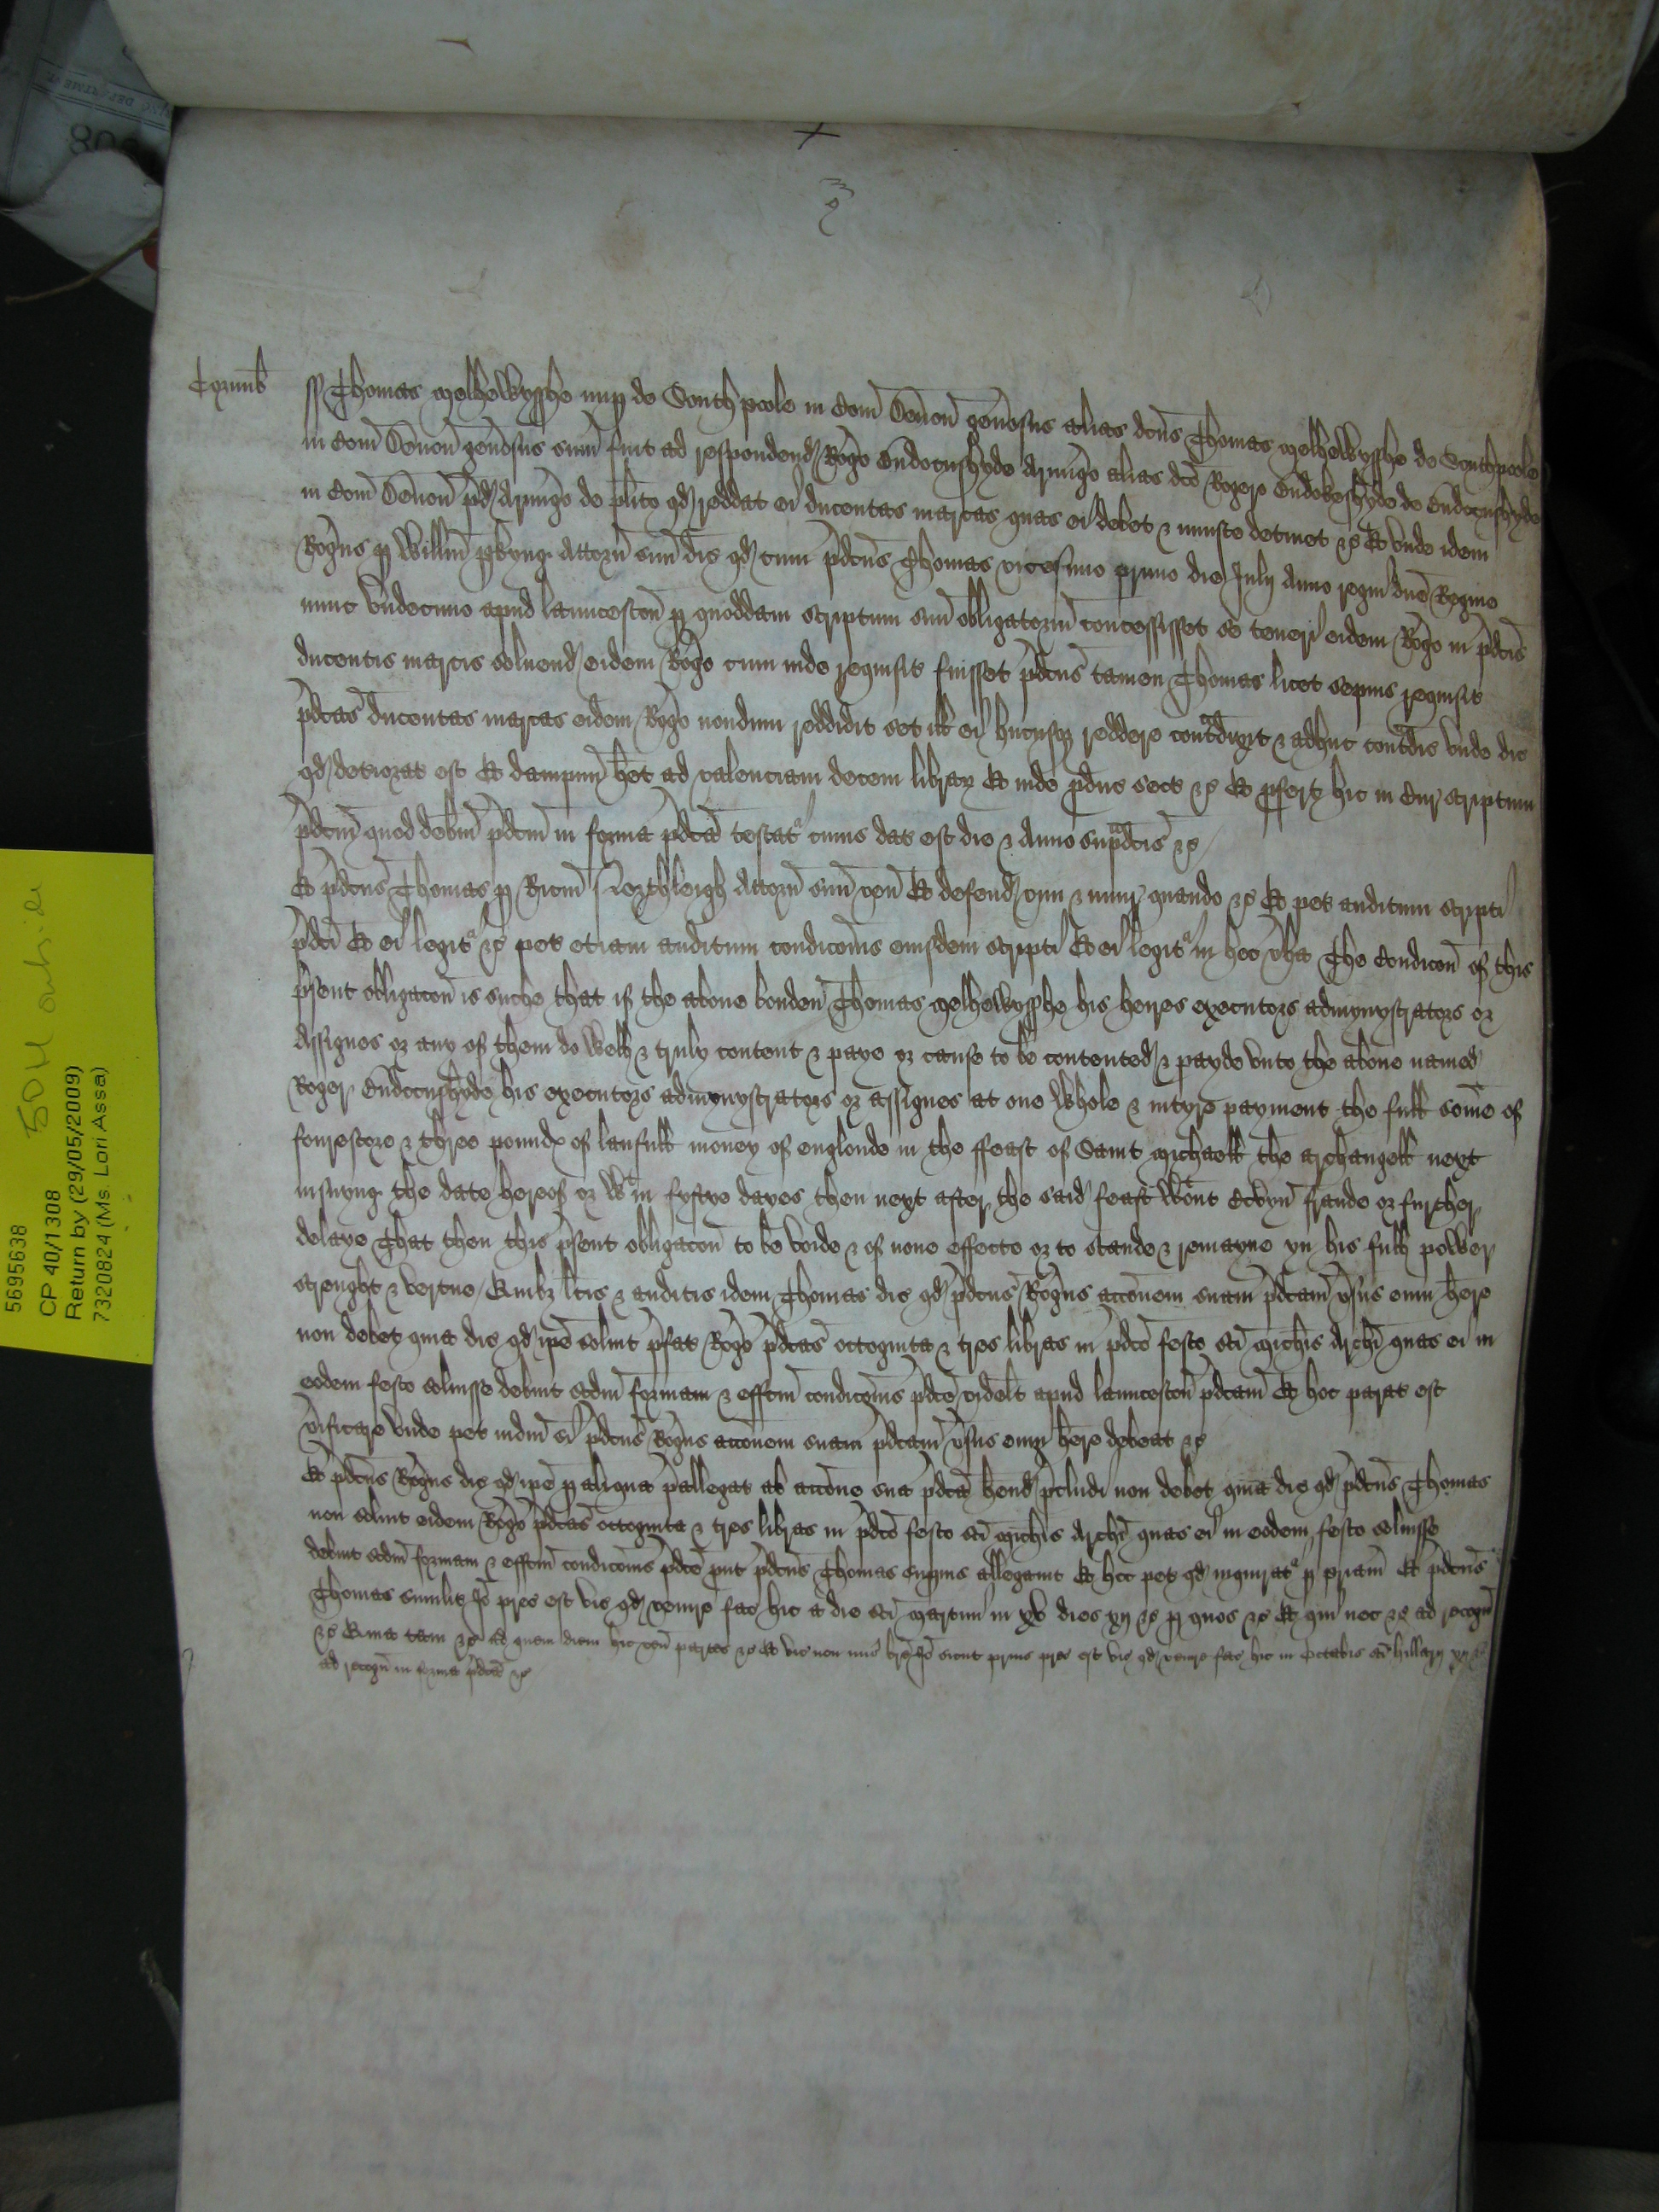 Cornub
ss Thomas Melhewysshe nup de Southpoole in Com Devon genosus alias dcus Thomas Melhewysshe de Southpoole
in Com Devon genosus sum fuit ad respondend Rogo Endecushyde Armigo alias dco Rogero de Endecushyde
in Com Devon pd Armigo de plito qd reddat ei ducentas marcas quas ei debet & iniuste detinet &c Et unde idem
Rogus p Willm attorn suu dic qd cum pdcus Thomas vicesimo primo die Julij Anno regni dne Regine
nunc undecimo apud launceston p quoddam scriptum suu obligatoriu concessisset se teneri eidem Rogo in pdcis
ducentis marcis solvend eidem Rogo cum inde requisit fuisset pdcus tamen Thomas licet sepius requisit
pdcas ducentas marcas eidem Rogo nondum reddidit set ill ei hucusq reddere contradixit & adhuc contradic unde dic
qd deteriorat est Et dampnu het ad valenciam decem librar Et inde pduc sect &c Et pfert hic in Cur scriptum
pdcm quod debm pdcm in forma pdca testat cuius dat est die & Anno supradcis &c
Et pdcus Thomas p Ricm Northleigh Attorn suu ven Et defend vim & iniur quando &c Et pet auditum scripti
pdci Et ei legit &c pet etiam auditum condicois eiusdem scripti Et ei legit in hec vba The Condicon of this
psent obligacon is suche that if the above bonden Thomas Melhewysshe his heires executors admynystrators or
Assignes or any of them do well & truly content & paye or cause to be contented & payde unto the above named
Roger Endecushyde his executors admynystrators or assignes at one whole & intyre payment the full some of
fourescore & three pounds of laufull money of englonde in the ffeast of Saint Michaell the archangell next
insuyng the date hereof or wtin fyftye dayes then next after the said feast wtout Covyn fraude or further
delaye That then this psent obligacon to be voide & of none effecte or to stande & remayne yn his full power
strenght & vertue Quibz lcis & auditis idem Thomas dic qd pdcus Rogus accoem suam pdcam vsus eum here
non debet quia dic qd ipe solvit pfat Rogo pdcas octoginta & tres libras in pdco festo sci Michis Archi quas ei in
eodem festo solvisse debuit scdm formam & effcm condicois pdce videlt apud launceston pdcam Et hoc parat est
vificare unde pet iudm si pdcus Rogus accoem suam pdcam vsus eum here debeat &c
Et pdcus Rogus dic qd ipe p aliqua pallegat ab accoe sua pdca hend pcludi non debet quia dic qd pdcus Thomas
non solvit eidem Rogo pdcas octoginta & tres libras in pdco festo sci Michis Archi quas ei in eodem festo solvisse
debuit scdm formam & effcm condicois pdce put pdcus Thomas supius allegavit Et hoc pet qd inquirat p priam Et pdcus
Thomas similit Io prec est vic qd venire fac hic a die sci Martini in xv dies xij &c p quos &c Et qui nec &c ad recogn
&c Quia tam &c Ad quem diem hic ven partes &c Et vic non mis bre Io sicut prius prec est vic qd venire fac hic in Octabis sci hillarij xij &c
ad recogn in forma pdca &c
5695638
CP 40/1308
Return by (29/05/2009)
7320824 (Ms. Lori Assa)